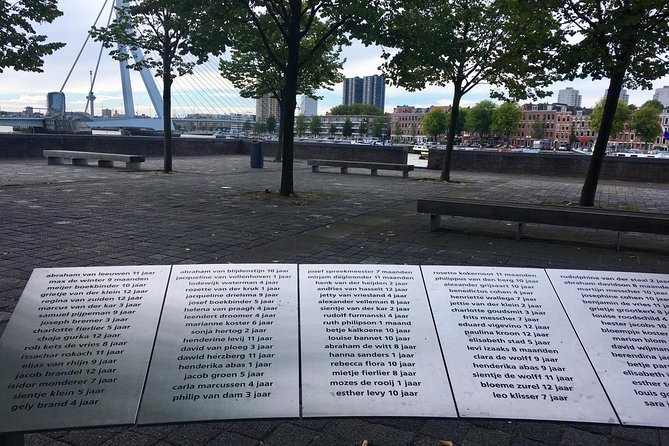 abraham van leeuwen 11 jaar
max de winter 9 maanden
meijer boekbinder 10 jaar
grietje van der klein 11 jaar
regina van zuiden 12 jaar
marcus van der kar 3 jaar
samuel pijpeman 9 jaar
joseph bremer 3 jaar
charlotte fierlier 5 jaar
chaja gurka 12 jaar
rob kets de vries 8 jaar
issachar rokach 11 jaar
elias van rhijn 9 jaar
david de brave 5 jaar
jacob brandel 5 jaar
isidor monderer 7 jaar
sientje klein 5 jaar
gely brand 4 jaar
abraham van blijdenstijn 10 jaar
jacqueline van vollenhoven 1 jaar
lodewijk waterman 4 jaar
rosette van den berg 7 jaar
jacqueline drielsma 9 jaar
josef boekbinder 5 jaar
helena van praagh 4 jaar
leendert droomer 4 jaar
marianne koster 6 jaar
sonja hertog 2 jaar
henderine levij 11 jaar
david van ploeg 3 jaar
dawid herzberg 11 jaar
henderika abas 1 jaar
jacob groen 5 jaar
carla marcussen 4 jaar
philip van dam 3 jaar
josef spreekmeester 7 maanden
mirjam dagloonder 11 maanden
henk van der heijden 2 jaar
andries van hasselt 12 jaar
jetty van vriesland 4 jaar
alexander velleman 4 jaar
sientje van der kar 2 jaar
rudolf furmanski 4 jaar
ruth philipson 1 maand
betje kalkoene 10 jaar
louise bannet 10 jaar
abraham de wit 8 jaar
hanna sanders 1 jaar
rebecca flora 10 jaar
mietje fierlier 8 jaar
mozes de rooij 1 jaar
esther levy 10 jaar
rosette kokernoot 11 maanden
philippus van den berg 4 jaar
alexander grijsaart 10 jaar
benedictus cohen 4 jaar
henriette wallega 7 jaar
hendrik van der klein 2 jaar
charlotte goudsmid 3 jaar
frits messcher 7 jaar
eduard vigeveno 12 jaar
paulina kroon 12 jaar
elisabeth stad 5 jaar
levi izaaks 8 maanden
clara de wolff 11 jaar
henderika abas 9 jaar
sientje de wolff 11 jaar
bloeme zurel 12 jaar
leo klisser 7 jaar
rudolphina van der stad
abraham davidson 8 maanden
martijn
josephina cohen 11
benjamin
grietje
louis roodschild
hester jacobs
boernan
david
berendina
betje
elisabeth
louis
sara